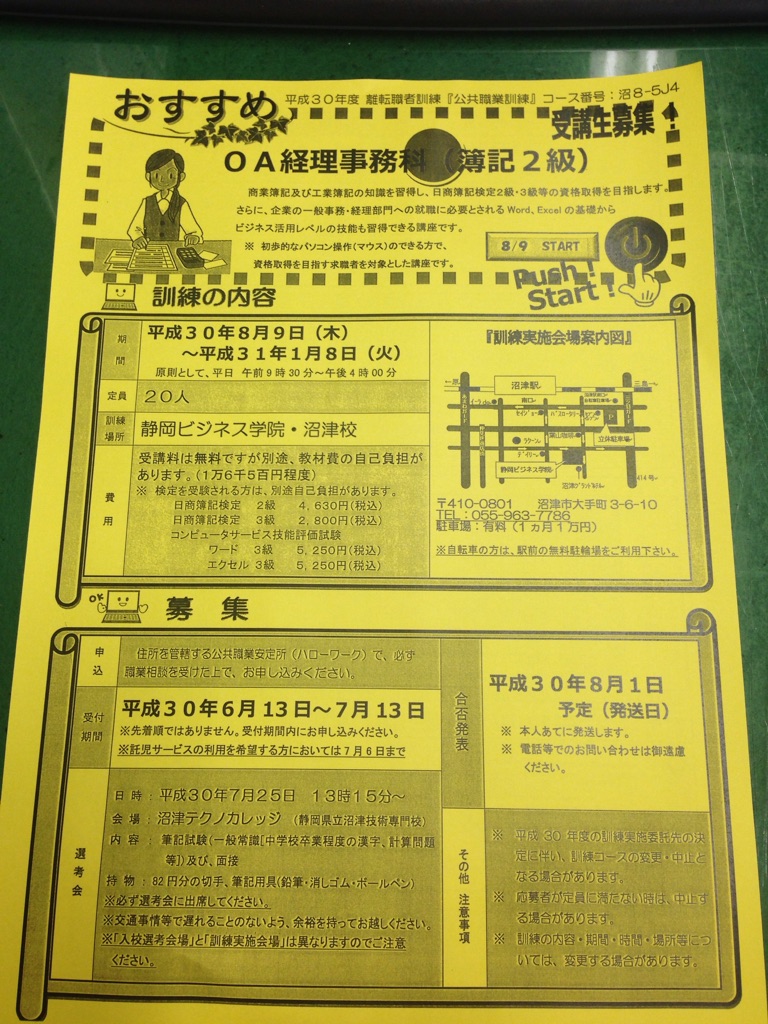 おすすめ
平成30年度 離転職者訓練『公共職業訓練』コース番号:沼8-5J4
受講生募集!
OA経理事務科(簿記2級)
商業簿記及び工業簿記の知識を習得し、日商簿記検定2級・3級等の資格取得を目指します。
さらに、企業の一般事務・経理部門への就職に必要とされるWord、Excelの基礎から
ビジネス活用レベルの技能も習得できる講座です。
※ 初歩的なパソコン操作(マウス)のできる方で、
資格取得を目指す求職者を対象とした講座です。
8/9 START
Push!
Start!
訓練の内容
期間
平成30年8月9日(木)
~平成31年1月8日(火)
原則として、平日 午前9時30分~午後4時00分
定員
20人
訓練場所
静岡ビジネス学院・沼津校
費用
受講料は無料ですが別途、教材費の自己負担が
あります。(1万6千5百円程度)
※ 検定を受験される方は、別途自己負担があります。
日商簿記検定 2級 4,630円(税込)
日商簿記検定 3級 2,800円(税込)
コンピュータサービス技能評価試験
ワード 3級 5,250円(税込)
エクセル 3級 5,250円(税込)
『訓練実施会場案内図』
←原
沼津駅
三島→
南口
立体駐車場
P
静岡ビジネス学院
414号
〒410-0801 沼津市大手町3-6-10
TEL:055-963-7786
駐車場:有料(1ヵ月1万円)
※自転車の方は、駅前の無料駐輪場をご利用下さい。
OK
募集
申込
住所を管轄する公共職業安定所(ハローワーク)で、必ず
職業相談を受けた上で、お申し込みください。
受付期間
平成30年6月13日~7月13日
※先着順ではありません。受付期間内にお申し込みください。
※託児サービスの利用を希望する方においては7月6日まで
合否発表
平成30年8月1日
予定(発送日)
※ 本人あてに発送します。
※ 電話等でのお問い合わせは御遠慮
ください。
選考会
日時:平成30年7月25日 13時15分~
会場:沼津テクノカレッジ (静岡県立沼津技術専門校)
内容:筆記試験(一般常識[中学校卒業程度の漢字、計算問題
等])及び、面接
持物:82円分の切手、筆記用具(鉛筆・消しゴム・ボールペン)
※必ず選考会に出席してください。
※交通事情等で遅れることのないよう、余裕を持ってお越しください。
※「入校選考会場」と「訓練実施会場」は異なりますのでご注意
ください。
その他 注意事項
※ 平成30年度の訓練実施委託先の決
定に伴い、訓練コースの変更・中止と
なる場合があります。
※ 応募者が定員に満たない時は、中止す
る場合があります。
※ 訓練の内容・期間・時間・場所等につ
いては、変更する場合があります。